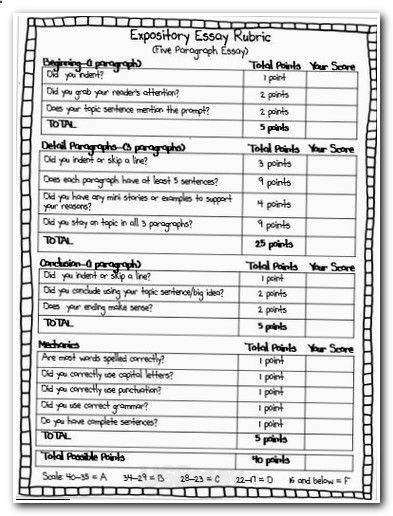 Expository Essay Rubric
(Five Paragraph Essay)
Beginning-(1 paragraph) Total Points Your Score
Did you indent? 1 point
Did you grab your reader's attention? 2 points
Does your topic sentence mention the prompt? 2 points
TOTAL 5 points
Detail Paragraphs-(3 paragraphs) Total Points Your Score
Did you indent or skip a line? 3 points
Does each paragraph have at least 5 sentences? 9 points
Did you have any mini stories or examples to support
your reasons? 4 points
Did you stay on topic in all 3 paragraphs? 9 points
TOTAL 25 points
Conclusion-(1 paragraph) Total Points Your Score
Did you indent or skip a line? 1 point
Did you conclude using your topic sentence/big idea? 2 points
Does your ending make sense? 2 points
TOTAL 5 points
Mechanics Total Points Your Score
Are most words spelled correctly? 1 point
Did you correctly use capital letters? 1 point
Did you correctly use punctuation? 1 point
Did you use correct grammar? 1 point
Do you have complete sentences? 1 point
TOTAL 5 points
Total Possible Points 40 points
Scale: 40-35 = A 34-29 = B 28-23 = C 22-17 = D 16 and below = F